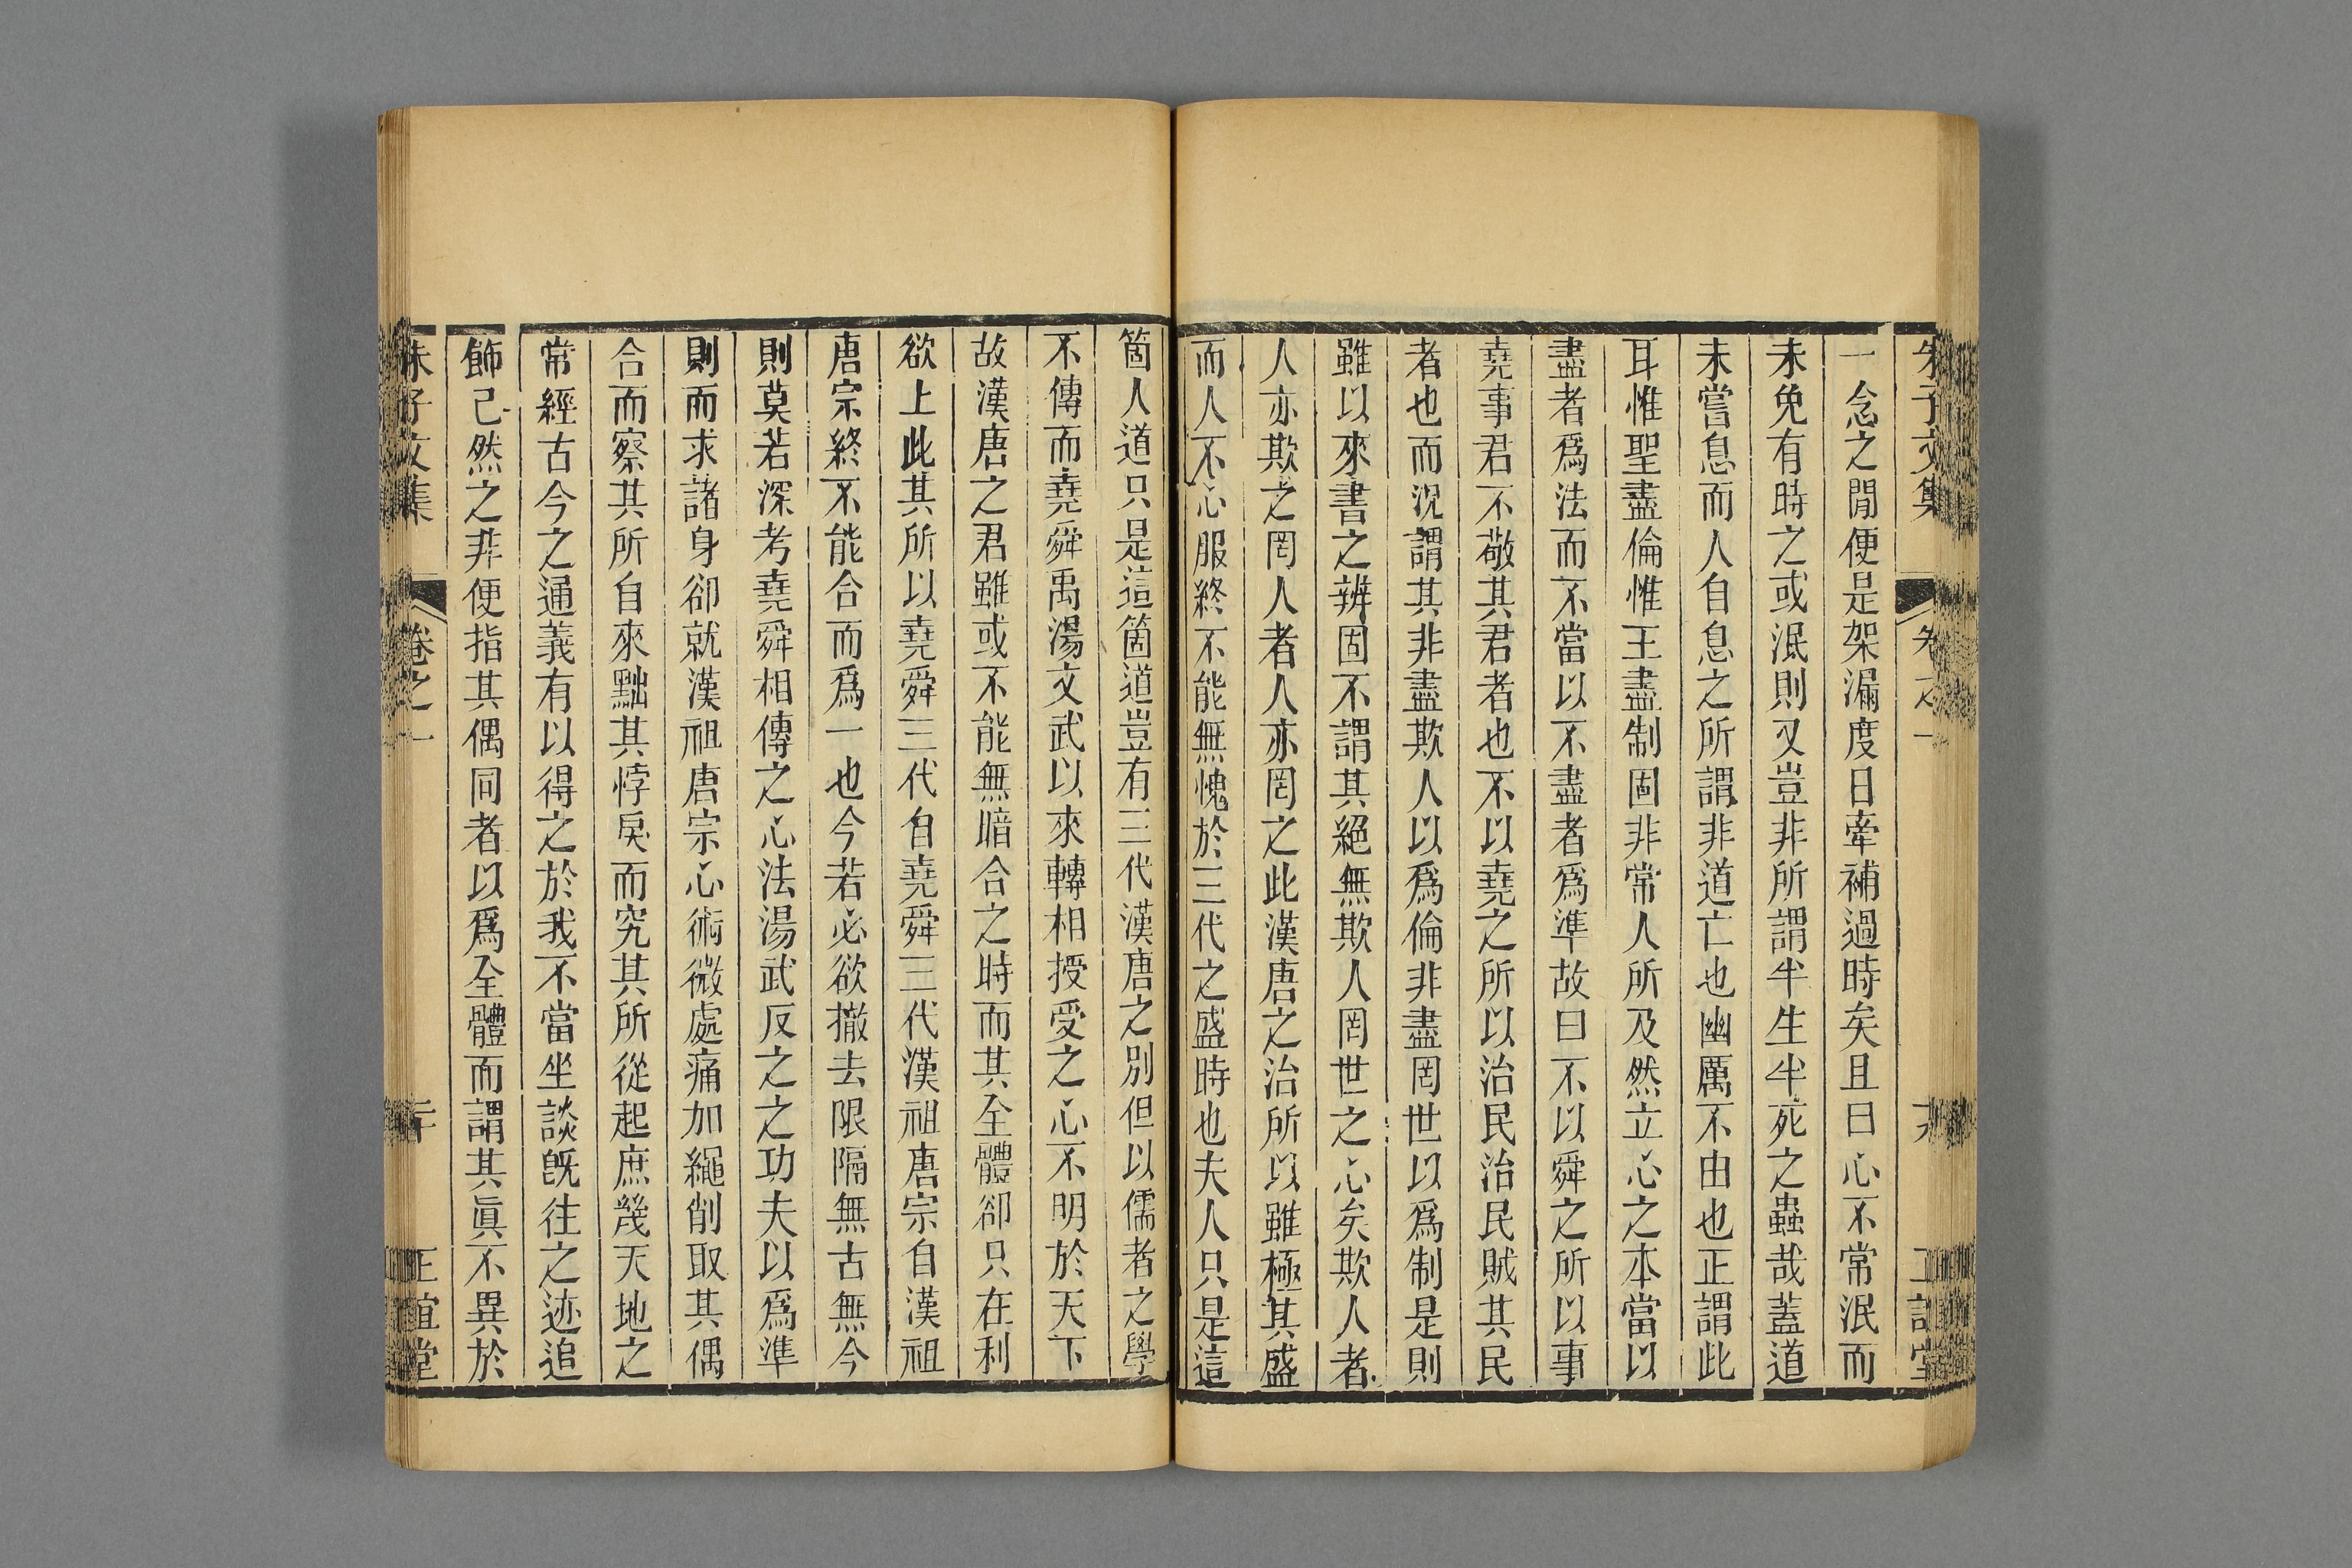 朱子文集 卷之一
一念之閒便是架漏度日牽補過時矣且曰心不常泯而
未免有時之或泯則又豈非所謂半生半死之蟲哉蓋道
未嘗息而人自息之所謂非道亡也幽厲不由也正謂此
耳惟聖盡倫惟王盡制固非常人所及然立心之本當以
盡者爲法而不當以不盡者爲準故曰不以舜之所以事
堯事君不敬其君者也不以堯之所以治民治民賊其民
者也而況謂其非盡欺人以爲倫非盡罔世以爲制是則
雖以來書之辨固不謂其絕無欺人罔世之心矣欺人者
人亦欺之罔人者人亦罔之此漢唐之治所以雖極其盛
而人不心服終不能無愧於三代之盛時也夫人只是這
箇人道只是這箇道豈有三代漢唐之別但以儒者之學
不傳而堯舜禹湯文武以來轉相授受之心不明於天下
故漢唐之君雖或不能無暗合之時而其全體卻只在利
欲上此其所以堯舜三代自堯舜三代漢祖唐宗自漢祖
唐宗終不能合而爲一也今若必欲撤去限隔無古無今
則莫若深考堯舜相傳之心法湯武反之之功夫以爲準
則而求諸身卻就漢祖唐宗心術微處痛加繩削取其偶
合而察其所自來黜其悖戾而究其所從起庶幾天地之
常經古今之通義有以得之於我不當坐談旣往之迹追
飾已然之非便指其偶同者以爲全體而謂其眞不異於
朱子文集 卷之一 二十 正誼堂